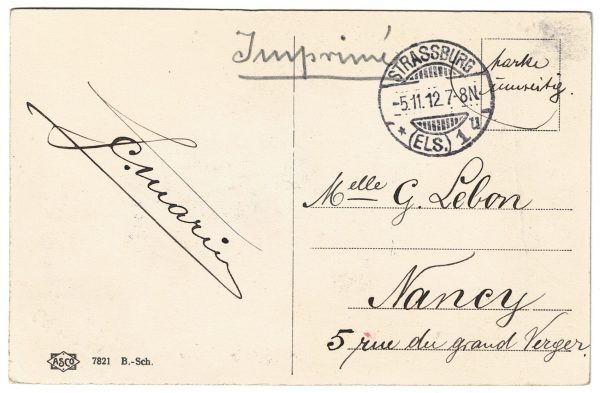 Imprimé
STRASSBURG
-5.11.12.7-8N.
* (ELS.) 1 u
Marke
umseitig.
Melle G. Lebon
Nancy
5 rue du grand Verger.
ASCO 7821 B.-Sch.